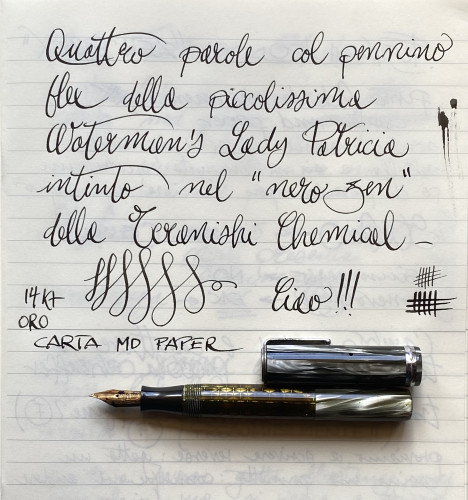 Quattro parole col pennino
flex della piccolissima
Waterman's Lady Patricia
intinto nel "nero zen"
della Teranishi Chemical_
Ciao!!!
14 KT
ORO
CARTA MD PAPER